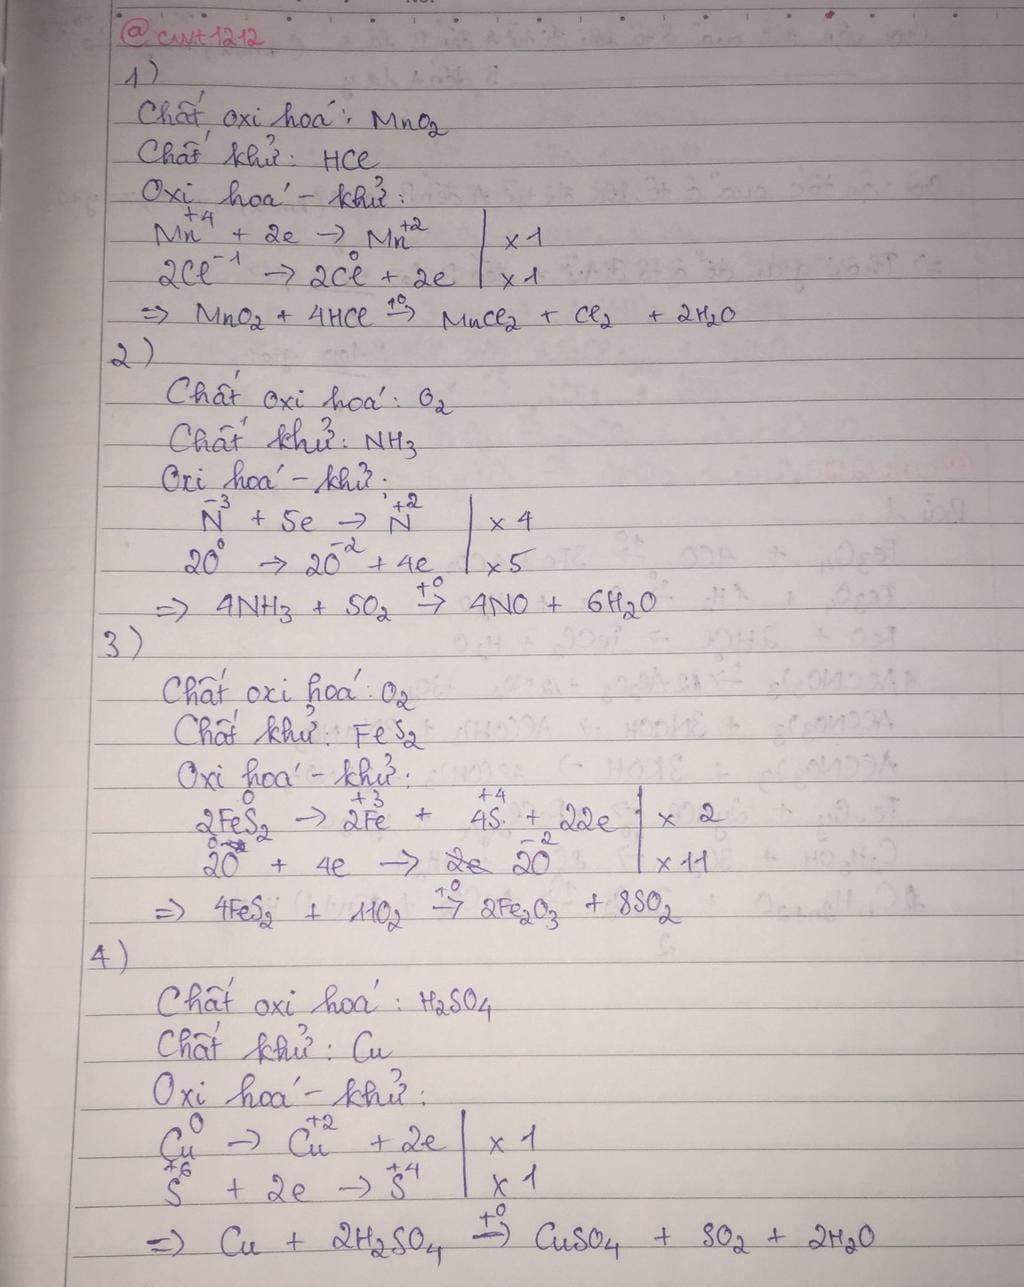 @cwt1212
1)
Chất oxi hoá: MnO₂
Chất khử: HCl
Oxi hoá - khử:
Mn⁺⁴ + 2e → Mn⁺² | x 1
2Cl⁻¹ → 2Cl⁰ + 2e | x 1
=> MnO₂ + 4HCl →(t⁰) MnCl₂ + Cl₂ + 2H₂O
2)
Chất oxi hoá: O₂
Chất khử: NH₃
Oxi hoá - khử:
N⁻³ + 5e → N⁺² | x 4
2O⁰ → 2O⁻² + 4e | x 5
=> 4NH₃ + 5O₂ →(t⁰) 4NO + 6H₂O
3)
Chất oxi hoá: O₂
Chất khử: FeS₂
Oxi hoá - khử:
2FeS₂⁰ → 2Fe⁺³ + 4S⁺⁴ + 22e | x 2
2O⁰ + 4e → 2O⁻² | x 11
=> 4FeS₂ + 11O₂ →(t⁰) 2Fe₂O₃ + 8SO₂
4)
Chất oxi hoá: H₂SO₄
Chất khử: Cu
Oxi hoá - khử:
Cu⁰ → Cu⁺² + 2e | x 1
S⁺⁶ + 2e → S⁺⁴ | x 1
=> Cu + 2H₂SO₄ →(t⁰) CuSO₄ + SO₂ + 2H₂O